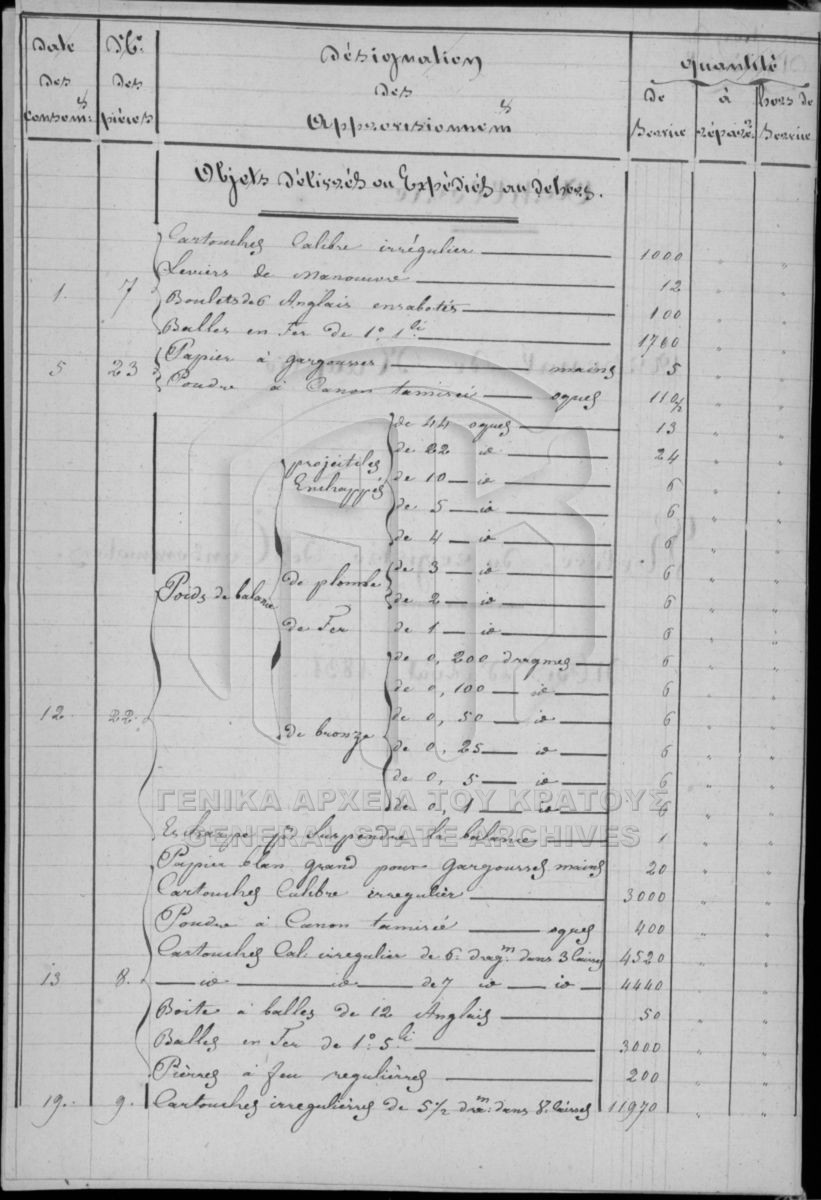 Date des Consom.s | N.os des pièces | Désignation des Approvisionnem.s | Quantité
de Service | à réparer | hors de Service
Objets délivrés ou Expédiés au dehors.
Cartouches Calibre irrégulier 1000 " "
Leviers de Manoeuvre 12 " "
1. 7 Boulets de 6 Anglais ensabotés 100 " "
Balles en Fer de 1° 1.li 1700 " "
5 23 Papier à gargousses mains 5 " "
Poudre à Canon tamisée oques 110 1/2 " "
de 44 oques 13 " "
de 22 id 24 " "
projectiles Enchappés de 10 id 6 " "
de 5 id 6 " "
de 4 id 6 " "
de 3 id 6 " "
Poids de balance de plombe de 2 id 6 " "
de Fer de 1 id 6 " "
de 0, 200 dragmes 6 " "
de 0, 100 id 6 " "
12. 22. de 0, 50 id 6 " "
de bronze de 0, 25 id 6 " "
de 0, 5 id 6 " "
de 0, 1 id 6 " "
ΓΕΝΙΚΑ ΑΡΧΕΙΑ ΤΟΥ ΚΡΑΤΟΥΣ
GENERAL STATE ARCHIVES
Enchappe pr Suspendre la balance 1 " "
Papier blan grand pour Gargousses mains 20 " "
Cartouches Calibre irregulier 3000 " "
Poudre à Canon tamisée oques 400 " "
Cartouches Cal. irregulier de 6. drag.m dans 3 Caisses 4520 " "
13 8. id id de 7 id id 4440 " "
Boite à balles de 12 Anglais 50 " "
Balles en Fer de 1° 5.li 3000 " "
Pièrres à feu regulièrres 200 " "
19. 9. Cartouches irregulièrres de 5 1/2 dra.m dans 8. Caisses 11970 " "